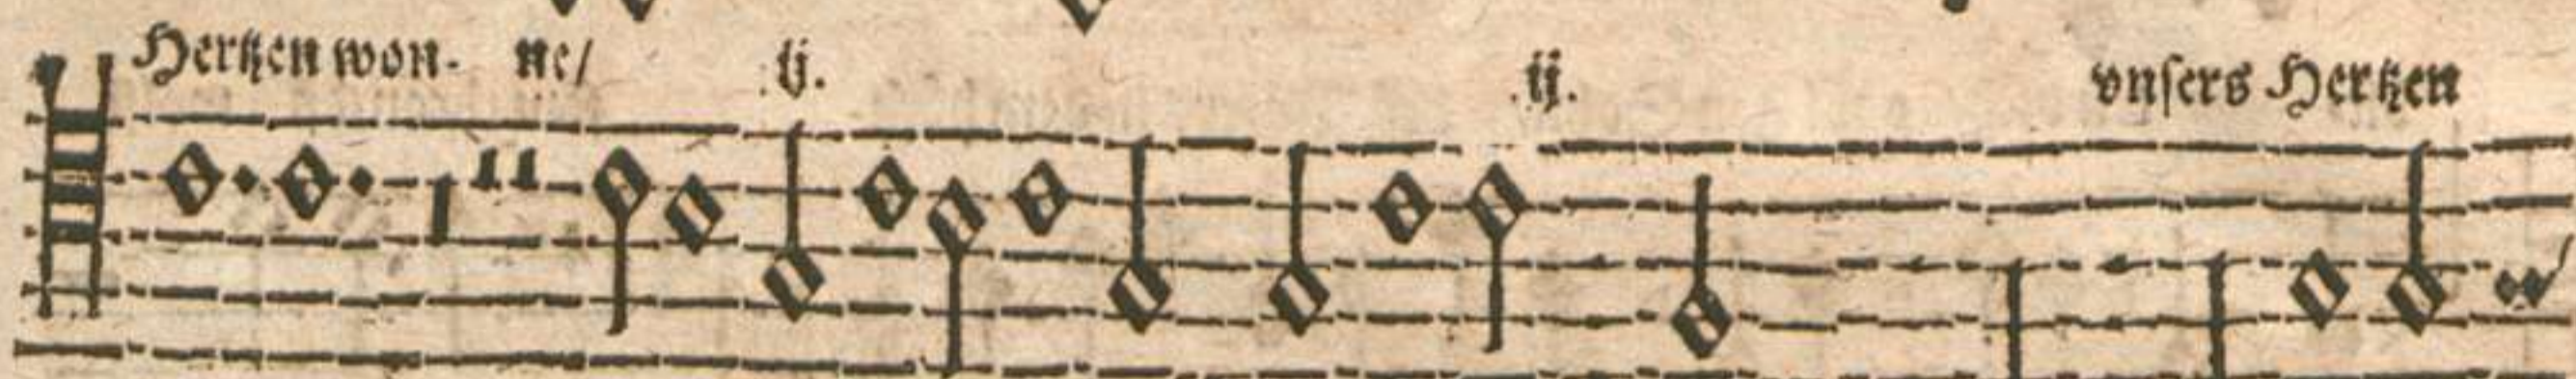 Hertzen won- ne/ ij. ij. vnsers Hertzen